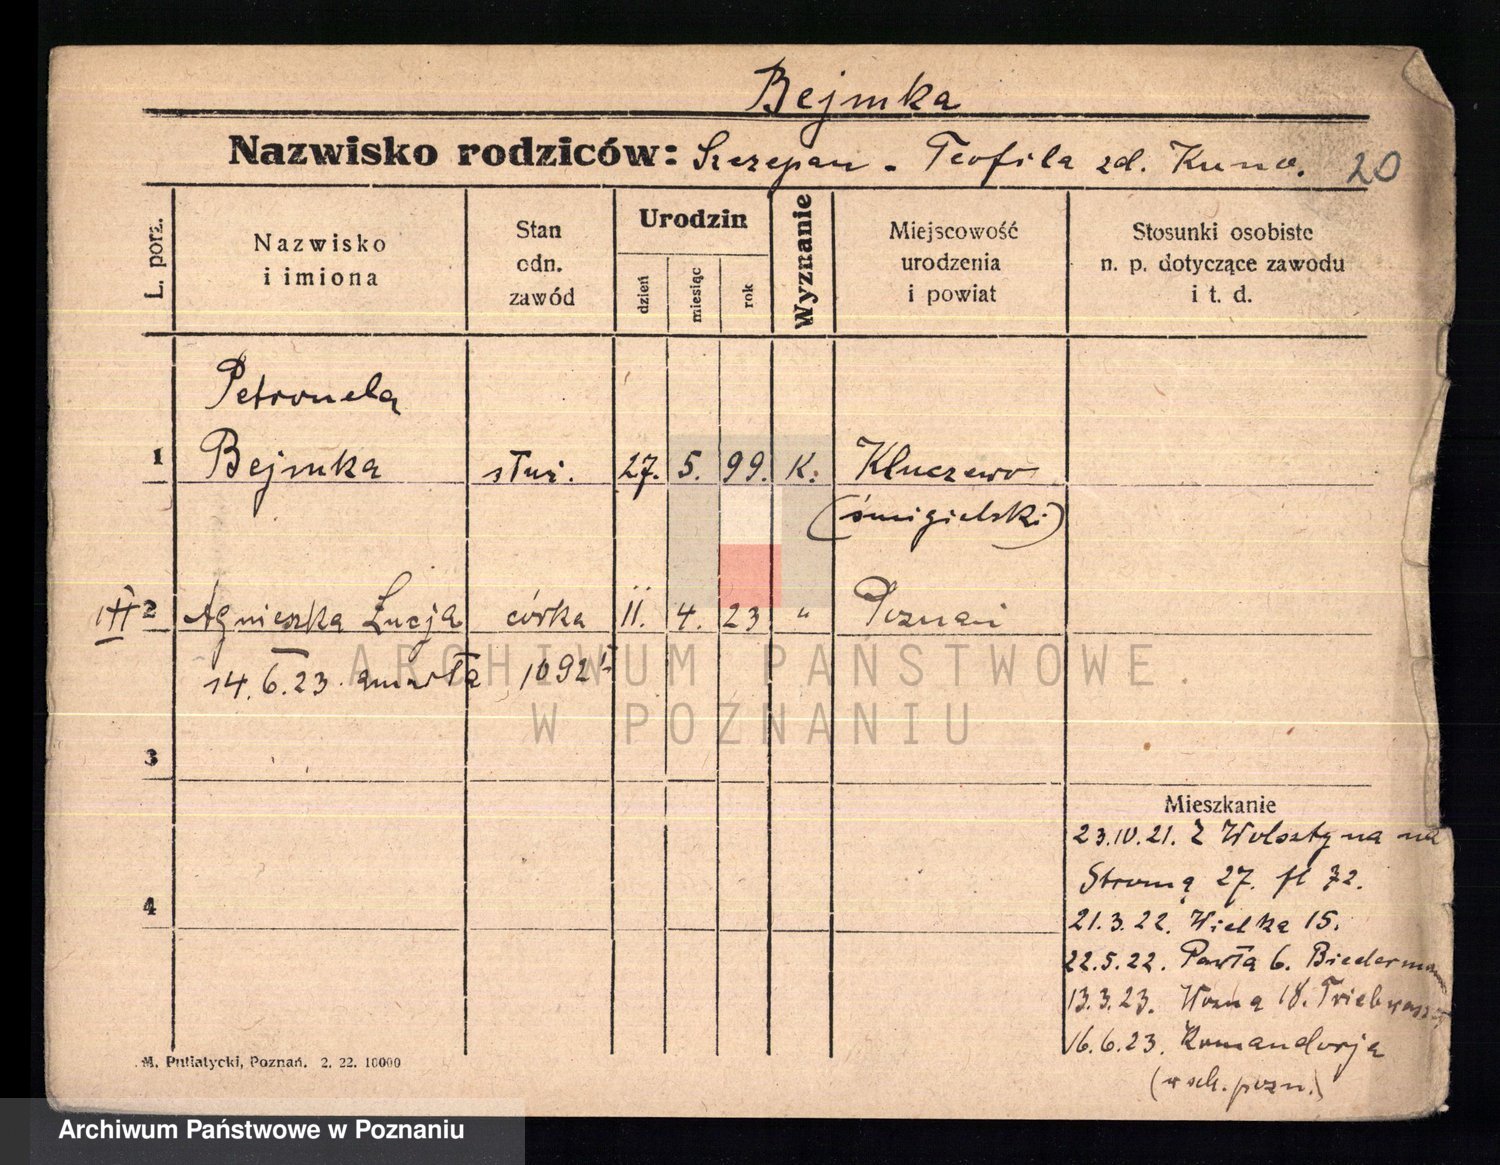 Bejmka
Nazwisko rodziców: Szczepan - Teofila zd. Kuno. 20
L. porz.
Nazwisko
i imiona
Stan
cdn.
zawód
Urodzin
dzień
miesiąc
rok
Wyznanie
Miejscowość
urodzenia
i powiat
Stosunki osobiste
n. p. dotyczące zawodu
i t. d.
Petronela
1 Bejmka służ. 27. 5. 99. K. Kluczewo
(śmigielski)
2 Agnieszka Łucja córka 11. 4. 23 " Poznań
14.6.23. zmarła 1092
ARCHIWUM PAŃSTWOWE
W POZNANIU
3
Mieszkanie
23.IV.21. Z Wolsztyna na
Stromą 27. 72.
4
21.3.22. Wielka 15.
22.5.22. Pawła 6. Biederman
13.3.23. Woźna 18.
16.6.23. Komandorja
(wsch. pozn.)
M. Putiatycki, Poznań. 2. 22. 10000
Archiwum Państwowe w Poznaniu